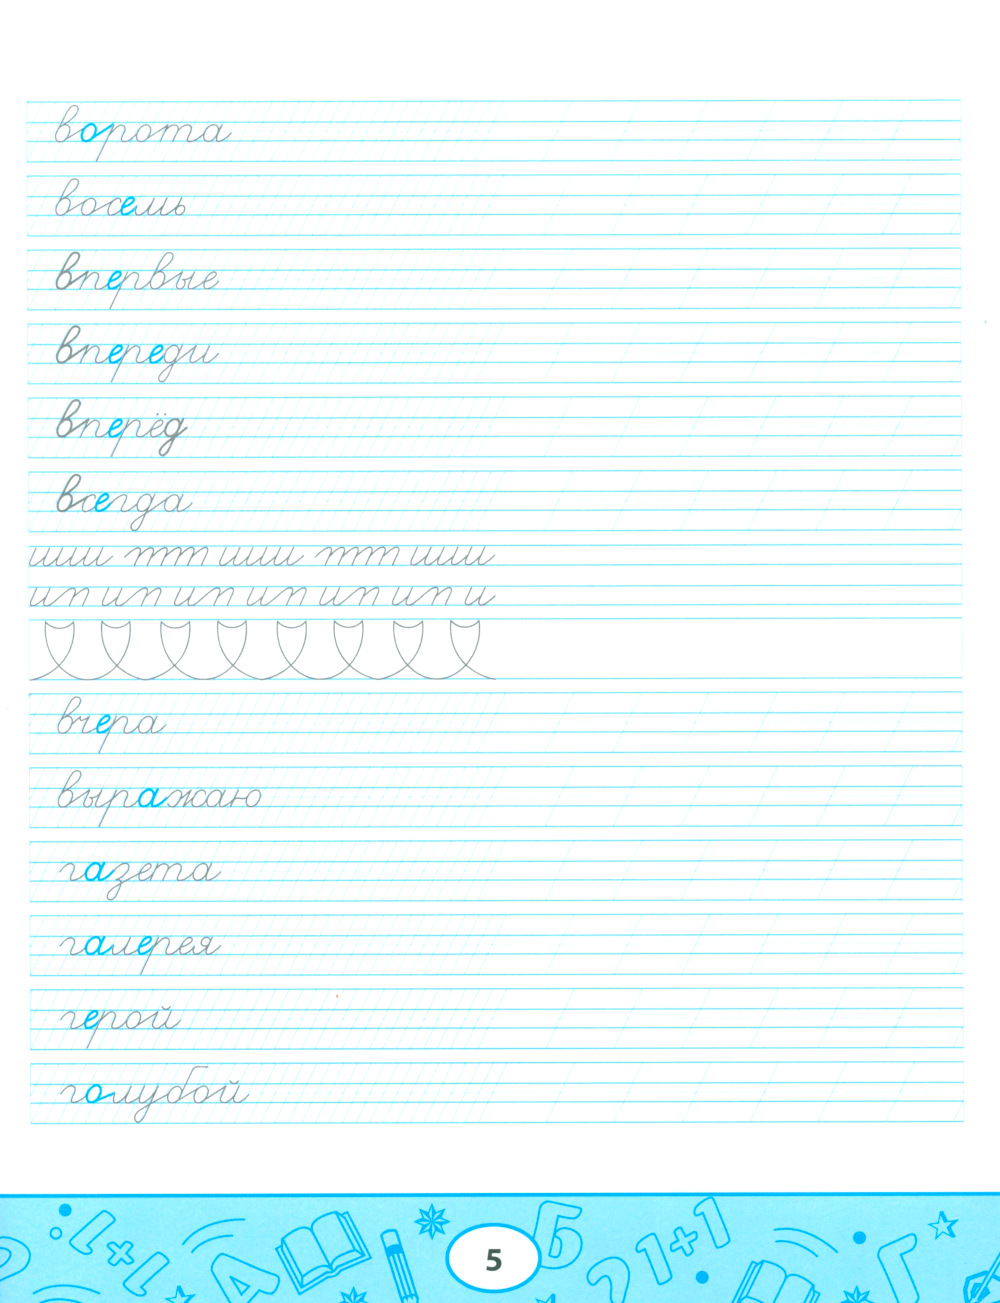 ворота
восемь
впервые
впереди
вперёд
всегда
шиш ттт шиш ттт шиш
ип ип ип ип ип ип и
вчера
выражаю
газета
галерея
герой
голубой
1+1 А Б 21+1 Г
5